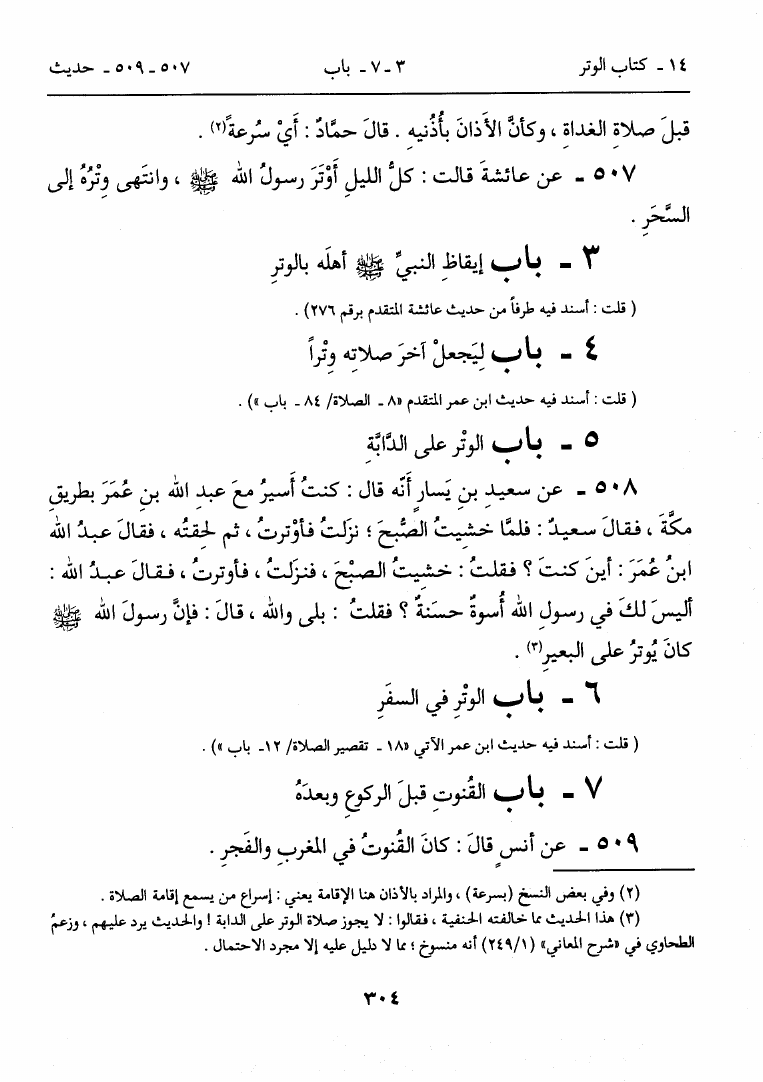 ١٤ ـ كتاب الوتر ٣ ـ ٧ ـ باب ٥٠٧ ـ ٥٠٩ ـ حديث
قبلَ صلاةِ الغداةِ ، وكأنَّ الأذانَ بأُذُنيهِ . قالَ حمَّادٌ : أَيْ سُرعةً(٢) .
٥٠٧ ـ عن عائشةَ قالت : كلُّ الليلِ أَوْتَرَ رسولُ الله ﷺ ، وانتَهى وِتْرُهُ إلى
السَّحَرِ .
٣ ـ باب إيقاظِ النبيِّ ﷺ أهلَه بالوترِ
( قلت : أسند فيه طرفاً من حديث عائشة المتقدم برقم ٢٧٦) .
٤ ـ باب لِيَجعلْ آخرَ صلاتِه وِتْراً
( قلت : أسند فيه حديث ابن عمر المتقدم «٨ ـ الصلاة/ ٨٤ ـ باب ») .
٥ ـ باب الوتْرِ على الدَّابَّةِ
٥٠٨ ـ عن سعيدِ بنِ يَسارٍ أَنَّه قال : كنتُ أَسيرُ معَ عبدِ الله بنِ عُمَرَ بطريقِ
مكَّةَ ، فقالَ سعيدٌ : فلمَّا خشيتُ الصُّبحَ ؛ نزَلتُ فأوْترتُ ، ثم لحِقتُه ، فقالَ عبدُ الله
ابنُ عُمَرَ : أينَ كنتَ ؟ فقلتُ : خشِيتُ الصبْحَ ، فنزَلتُ ، فأوترتُ ، فقالَ عبدُ الله :
أليسَ لكَ في رسولِ الله أُسوةٌ حسَنةٌ ؟ فقلتُ : بلى والله ، قالَ : فإنَّ رسولَ الله ﷺ
كانَ يُوترُ على البعيرِ(٣) .
٦ ـ باب الوتْرِ في السفَرِ
( قلت : أسند فيه حديث ابن عمر الآتي «١٨ ـ تقصير الصلاة/ ١٢ـ باب ») .
٧ ـ باب القُنوتِ قبلَ الركوعِ وبعدَهُ
٥٠٩ ـ عن أنسٍ قالَ : كانَ القُنوتُ في المغربِ والفَجرِ .
(٢) وفي بعض النسخ (بسرعة) ، والمراد بالأذان هنا الإقامة يعني : إسراع من يسمع إقامة الصلاة .
(٣) هذا الحديث مما خالفته الحنفية ، فقالوا : لا يجوز صلاة الوتر على الدابة ! والحديث يرد عليهم ، وزعمُ
الطحاوي في «شرح المعاني» (٢٤٩/١) أنه منسوخ ؛ مما لا دليل عليه إلا مجرد الاحتمال .
٣٠٤